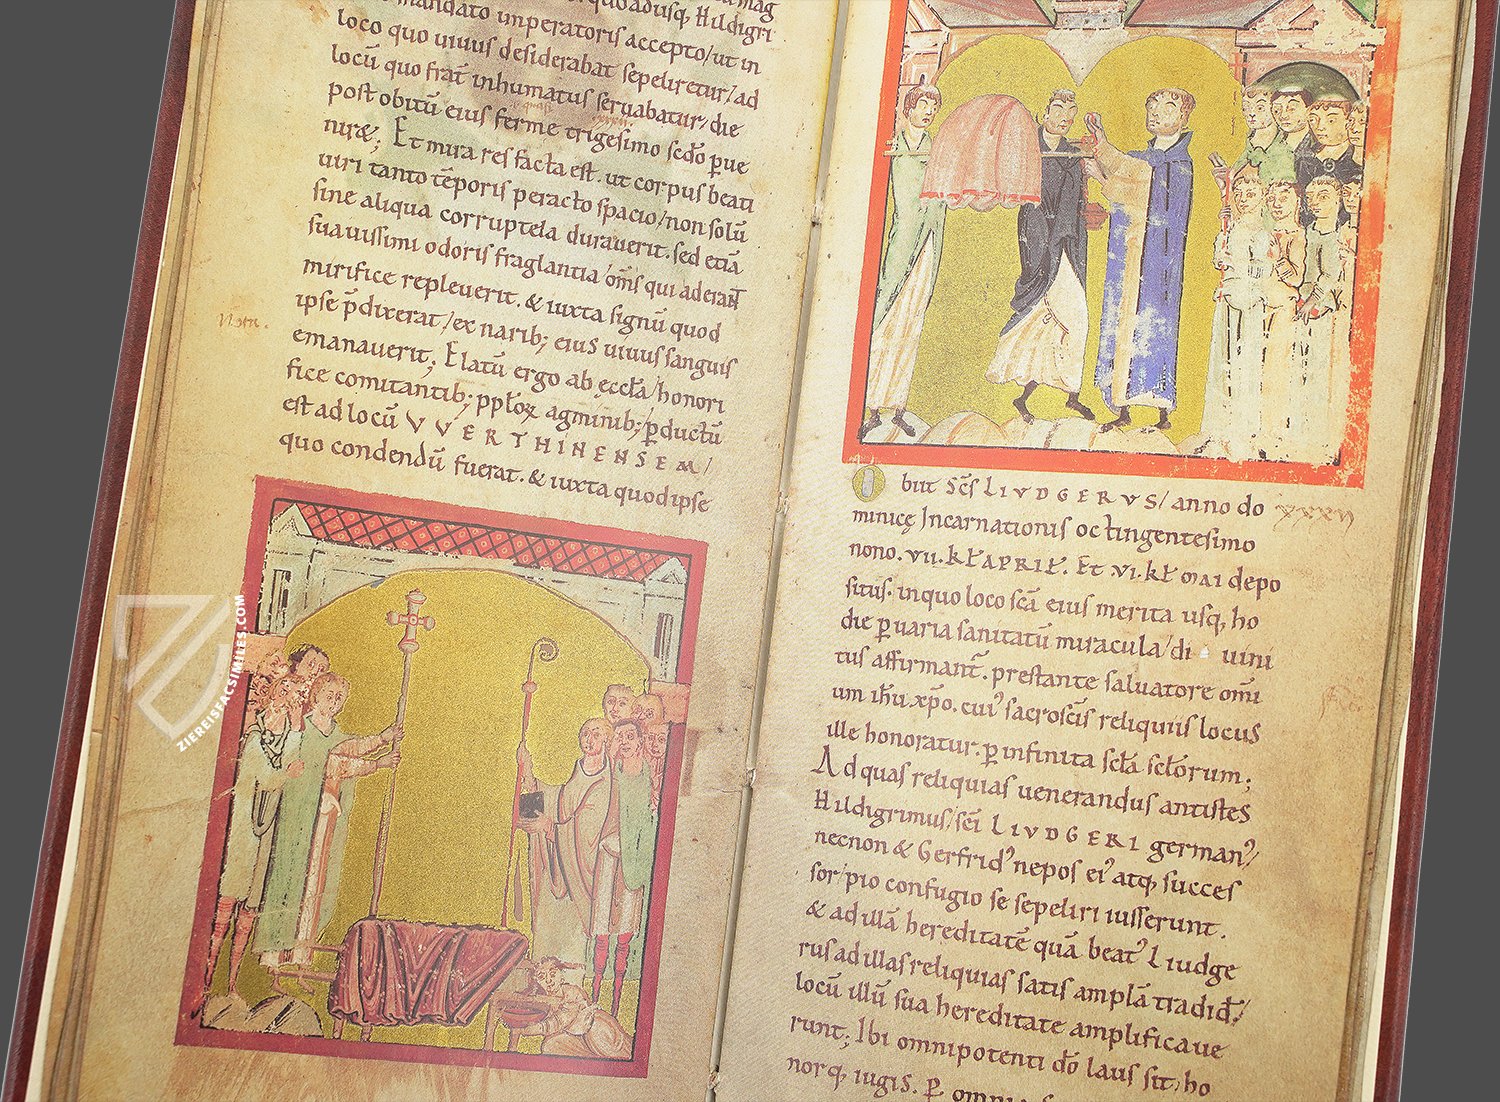 mandato imperatoris accepto/ut in
loco quo uiuus desiderabat sepeliretur/ad
locū quo frat̄ inhumatus seruabatur/die
post obitū eius ferme trigesimo scd̄o ꝑue
niret; Et mira res facta est. ut corpus beati
uiri tanto tēporis peracto spacio/non solū
sine aliqua corruptela durauerit. sed etiā
suauissimi odoris fraglantia/om̄s qui aderant
mirifice repleuerit. & iuxta signū quod
ipse p̄dixerat/ex narib; eius uiuus sanguis
emanauerit; Elatū ergo ab ęccl̄a/honori
fice comitantib; ppl̄oꝝ agminib;/ꝑductū
est ad locū VVERTHINENSEM/
quo condendū fuerat. & iuxta quod ipse
Nota.
Obiit Sc̄s LIVDGERVS/anno do
minicę Incarnationis octingentesimo
nono. VII. kł APRIł. Et VI. kł MAI depo
situs. in quo loco sc̄a eius merita usq; ho
die ꝑ uaria sanitatū miracula/di uini
tus affirmant̄. prestante saluatore om̄i
um ih̄u xp̄o. cui' sacrosc̄is reliquiis locus
ille honoratur. ꝑ infinita scł̄a scł̄orum;
Ad quas reliquias uenerandus antistes
Hildigrimus/sc̄i LIVDGERI german'/
necnon & Gerfrid' nepos ei' atq; succes
sor/pio confugio se sepeliri iusserunt.
& ad illā hereditatē quā beat' Liudge
rus ad illas reliquias satis amplā tradid̄/
locū illū sua hereditate amplificaue
runt; Ibi omnipotenti dō laus sit/ho
norq; iugis. Ꝑ omnia
xxxii
ZIEREISFACSIMILES.COM